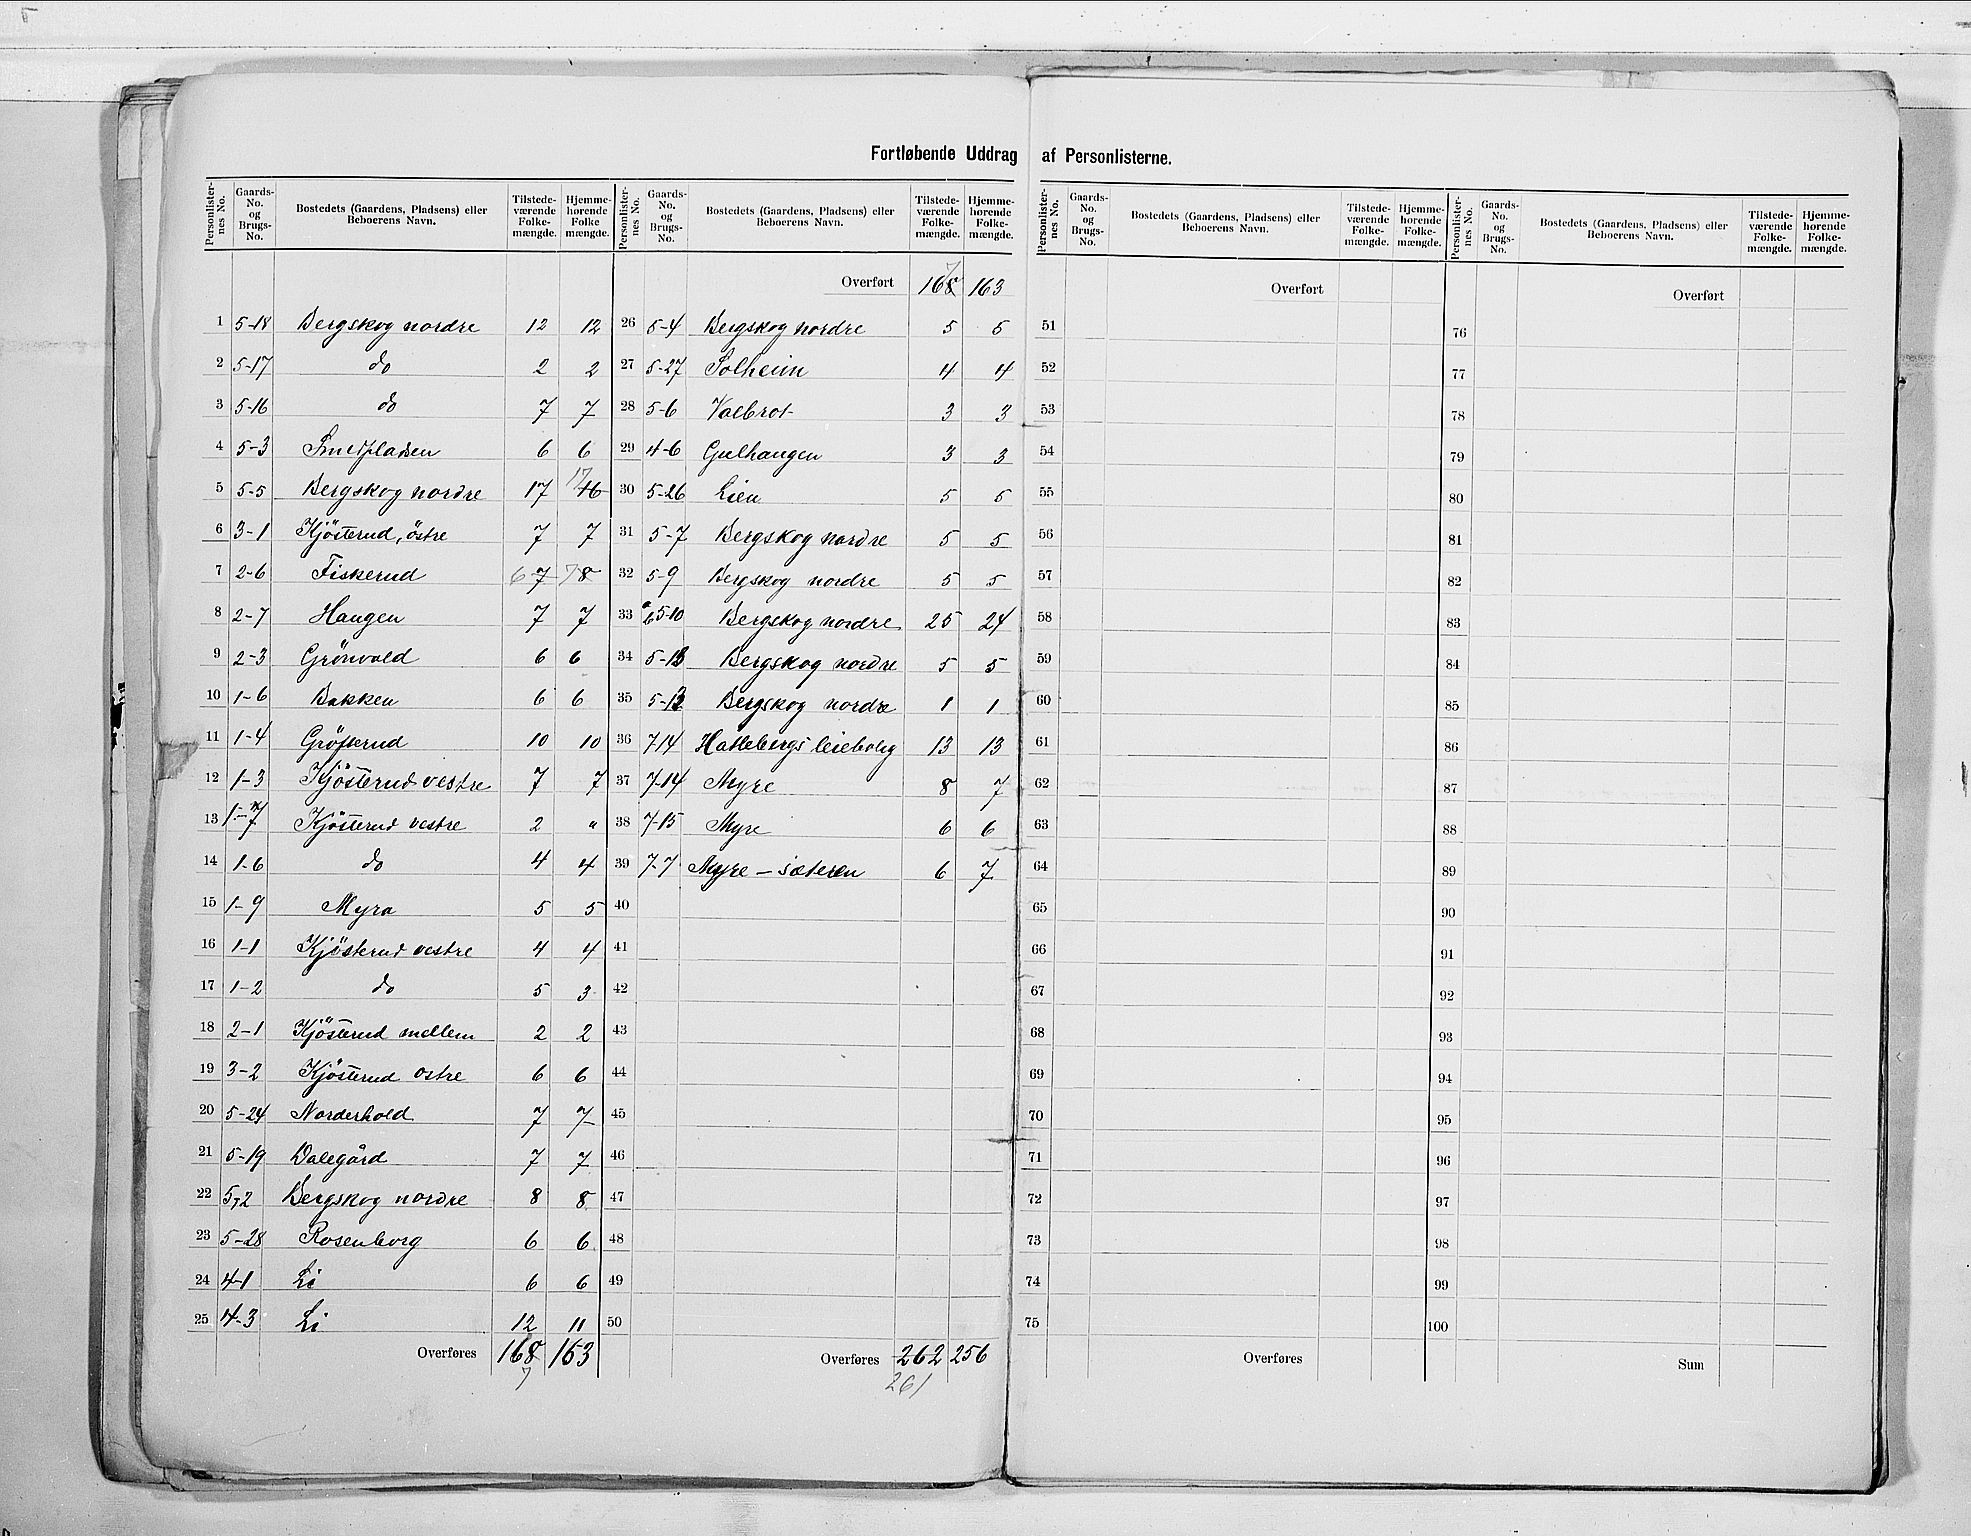 Fortløbende Uddrag af Personlisterne.
Personlister-nes No. | Gaards-No. og Brugs-No. | Bostedets (Gaardens, Pladsens) eller Beboerens Navn. | Tilstede-værende Folke-mængde. | Hjemme-hørende Folke mængde.
1 5-18 Bergskog nordre 12 12
2 5-17 do 2 2
3 5-16 do 7 7
4 5-3 Smedpladsen 6 6
5 5-5 Bergskog nordre 17 17 16
6 3-1 Kjösterud, östre 7 7
7 2-6 Fiskerud 6 7 7 8
8 2-7 Haugen 7 7
9 2-3 Grönvold 6 6
10 1-6 Bakken 6 6
11 1-4 Gröfterud 10 10
12 1-3 Kjösterud vestre 7 7
13 1-7 Kjösterud vestre 2 "
14 1-6 do 4 4
15 1-9 Myra 5 5
16 1-1 Kjösterud vestre 4 4
17 1-2 do 5 3
18 2-1 Kjösterud mellem 2 2
19 3-2 Kjösterud ostre 6 6
20 5-24 Norderhold 7 7
21 5-19 Dalegård 7 7
22 5,2 Bergskog nordre 8 8
23 5-28 Rosenborg 6 6
24 4-1 Li 6 6
25 4-3 Li 12 11
Overføres 168 163
7
Personlister-nes No. | Gaards-No. og Brugs-No. | Bostedets (Gaardens, Pladsens) eller Beboerens Navn. | Tilstede-værende Folke-mængde. | Hjemme-hørende Folke-mængde.
7
Overført 168 163
26 5-4 Bergskog nordre 5 5
27 5-27 Solheim 4 4
28 5-6 Valbrot 3 3
29 4-6 Gulhaugen 3 3
30 5-26 Lien 5 5
31 5-7 Bergskog nordre 5 5
32 5-9 Bergskog nordre 5 5
33 5-10 Bergskog nordre 25 24
34 5-13 Bergskog nordre 5 5
35 5-12 Bergskog nordre 1 1
36 7-14 Hallebergs leiebolig 13 13
37 7-14 Myre 8 7
38 7-15 Myre 6 6
39 7-7 Myre – sæteren 6 7
40
41
42
43
44
45
46
47
48
49
50
Overføres 262 256
261
Personlister-nes No. | Gaards-No. og Brugs-No. | Bostedets (Gaardens, Pladsens) eller Beboerens Navn. | Tilstede-værende Folke-mængde. | Hjemme-hørende Folke-mængde.
Overført
51
52
53
54
55
56
57
58
59
60
61
62
63
64
65
66
67
68
69
70
71
72
73
74
75
Overføres
Personlister-nes No. | Gaards-No. og Brugs-No. | Bostedets (Gaardens, Pladsens) eller Beboerens Navn. | Tilstede-værende Folke-mængde. | Hjemme-hørende Folke-mængde.
Overført
76
77
78
79
80
81
82
83
84
85
86
87
88
89
90
91
92
93
94
95
96
97
98
99
100
Sum